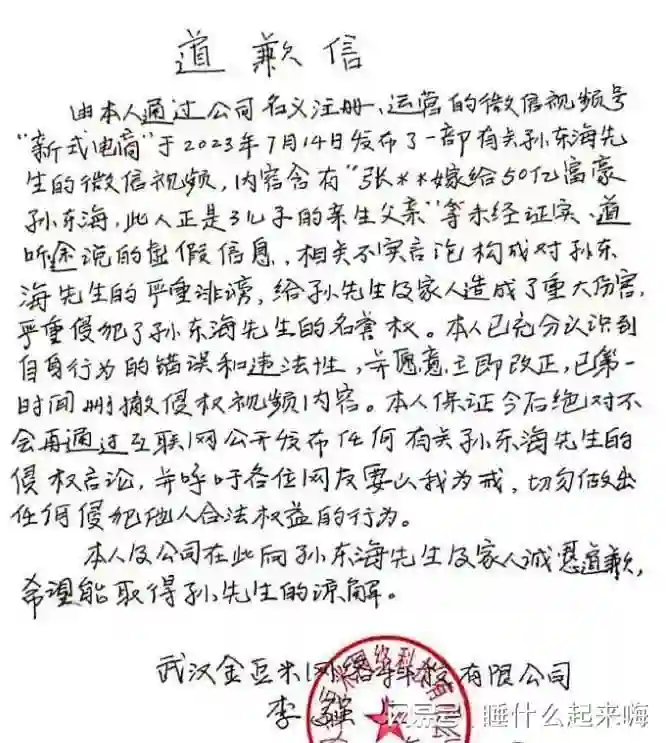 道歉信
由本人通过公司名义注册、运营的微信视频号
"新式电商"于2023年7月14日发布了一部有关孙东海先
生的微信视频,内容含有"张**嫁给50亿富豪
孙东海,此人正是3儿子的亲生父亲"等未经证实、道
听途说的虚假信息,相关不实言论构成对孙东
海先生的严重诽谤,给孙先生及家人造成了重大伤害,
严重侵犯了孙东海先生的名誉权。本人已充分认识到
自身行为的错误和违法性,并愿意立即改正,已第一
时间删撤侵权视频内容。本人保证今后绝对不
会再通过互联网公开发布任何有关孙东海先生的
侵权言论,并呼吁各位网友要以我为戒,切勿做出
任何侵犯他人合法权益的行为。
本人及公司在此向孙东海先生及家人诚恳道歉,
希望能取得孙先生的谅解。
武汉金豆米网络科技有限公司
李强
搜狐号@睡什么起来嗨